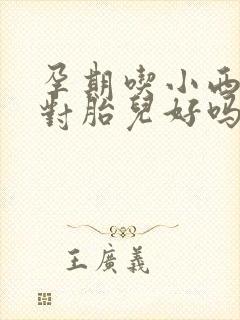 孕期喫小西
對胎兒好嗎
王廣義